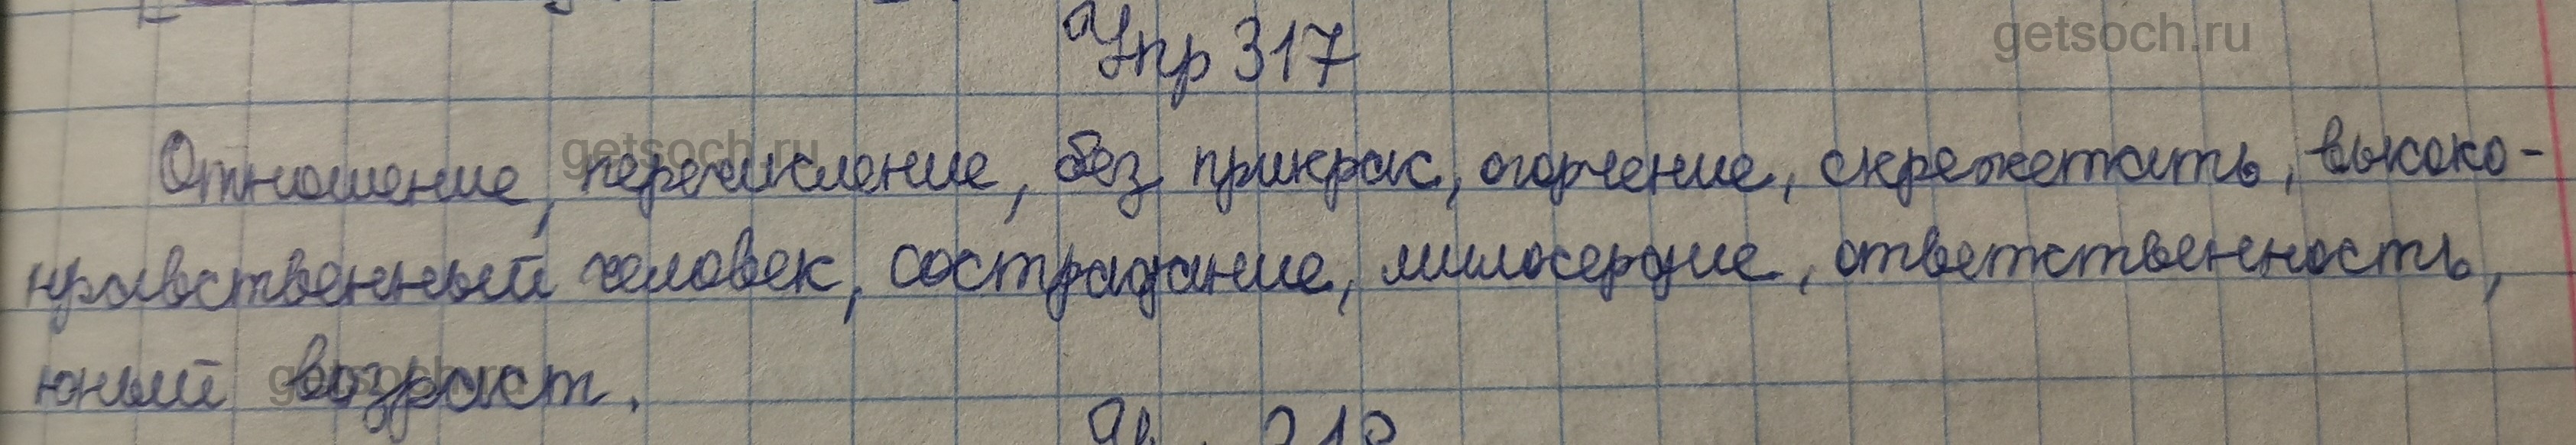 getsoch.ru
Упр 317
getsoch.ru
Отношение, перечисление, без прикрас, огорчение, скрежетать, высоко-
нравственный человек, сострадание, милосердие, ответственность,
юный возраст.
getsoch.ru